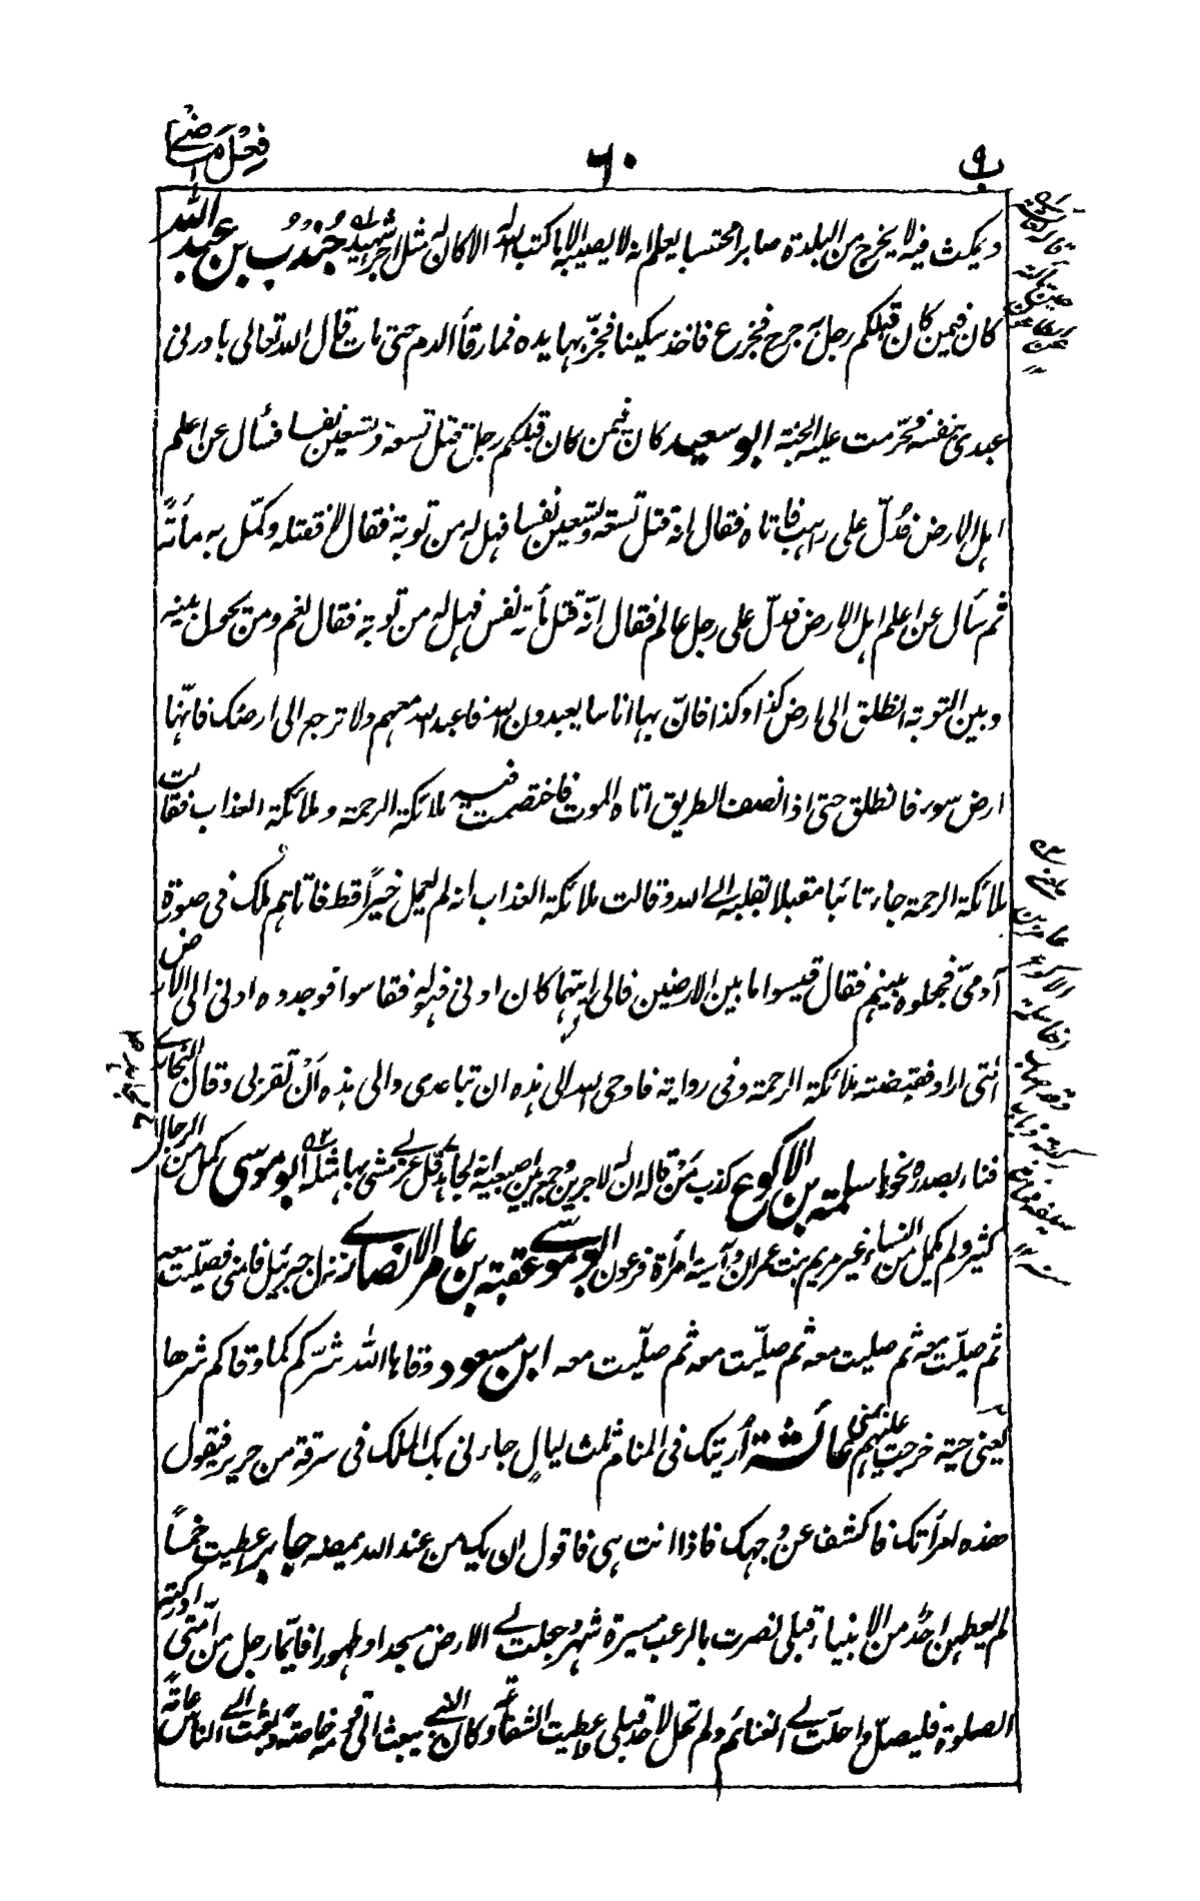 ب ٩
٦٠
فعل ماضى
ويمكث فيه لا يخرج من البلدة صابرا محتسبا يعلم انه لا يصيبه الا ما كتب الله له الا كان له مثل اجر شهيد جُنْدُب بن عبد الله
كان فيمن كان قبلكم رجل به جرح فجزع فاخذ سكينا فجزّ بها يده فما رقأ الدم حتى مات قال الله تعالى بادرنى
عبدى بنفسه فحرّمت عليه الجنة ابو سعيد كان فيمن كان قبلكم رجل قتل تسعة وتسعين نفسا فسأل عن اعلم
اهل الارض فدُلّ على راهب فاتاه فقال انه قتل تسعة وتسعين نفسا فهل له من توبة فقال لا فقتله وكمّل به مأتهً
ثم سأل عن اعلم اهل الارض فدلّ على رجل عالم فقال انّه قتل مأته نفس فهل له من توبة فقال نعم ومن يحول بينه
وبين التوبة انطلق الى ارض كذا وكذا فانّ بها اناسا يعبدون الله فاعبد الله معهم ولا ترجع الى ارضك فانّها
ارض سوء فانطلق حتى اذا نصف الطريق اتاه الموت فاختصمت فيه ملائكة الرحمة وملائكة العذاب فقالت
ملائكة الرحمة جاء تائبا مقبلا بقلبه الى الله وقالت ملائكة العذاب انه لم يعمل خيراً قط فاتاهم ملك فى صورة
آدمىّ فجعلوه بينهم فقال قيسوا ما بين الارضين فالى ايتهما كان ادنى فهو له فقاسوا فوجدوه ادنى الى الارض
التى اراد فقبضته ملائكة الرحمة وفى رواية فاوحى الله الى هذه ان تباعدى والى هذه اَنْ تقربى وقال البخارى
فناء بصدره نحوها سلمة بن الاكوع كذب مَنْ قاله ان له لاجرين وجمع بين اصبعيه انه لجاهد مجاهد قلّ عربى مشى بها مثله ابو موسى كمل من الرجال
كثير ولم يكمل من النساء غير مريم بنت عمران وآسية امرأة فرعون ابو مسعود عقبة بن عامر الانصارى نزل جبرئيل فامنى فصلّيت معه
ثم صلّيت معه ثم صليت معه ثم صلّيت معه ثم صلّيت معه ابن مسعود وقاها الله شرّكم كما وقاكم شرها
يعنى حيّة خرجت عليهم بمنى عائشة أُريتك فى المنام ثلث ليالٍ جاءنى بك الملك فى سرقة من حرير فيقول
هذه امرأتك فاكشف عن وجهك فاذا انت هى فاقول ان يك من عند الله يمضه جابر اعطيت خمساً
لم يعطهن احد من الانبياء قبلى نصرت بالرعب مسيرة شهر وجعلت لى الارض مسجدا وطهورا فايّما رجل من امّتى ادركته
الصلوة فليصلّ واحلّت لى الغنائم ولم تحل لاحد قبلى واعطيت الشفاعة وكان النبى يبعث الى قومه خاصةً وبعثت الى الناس عامّةً